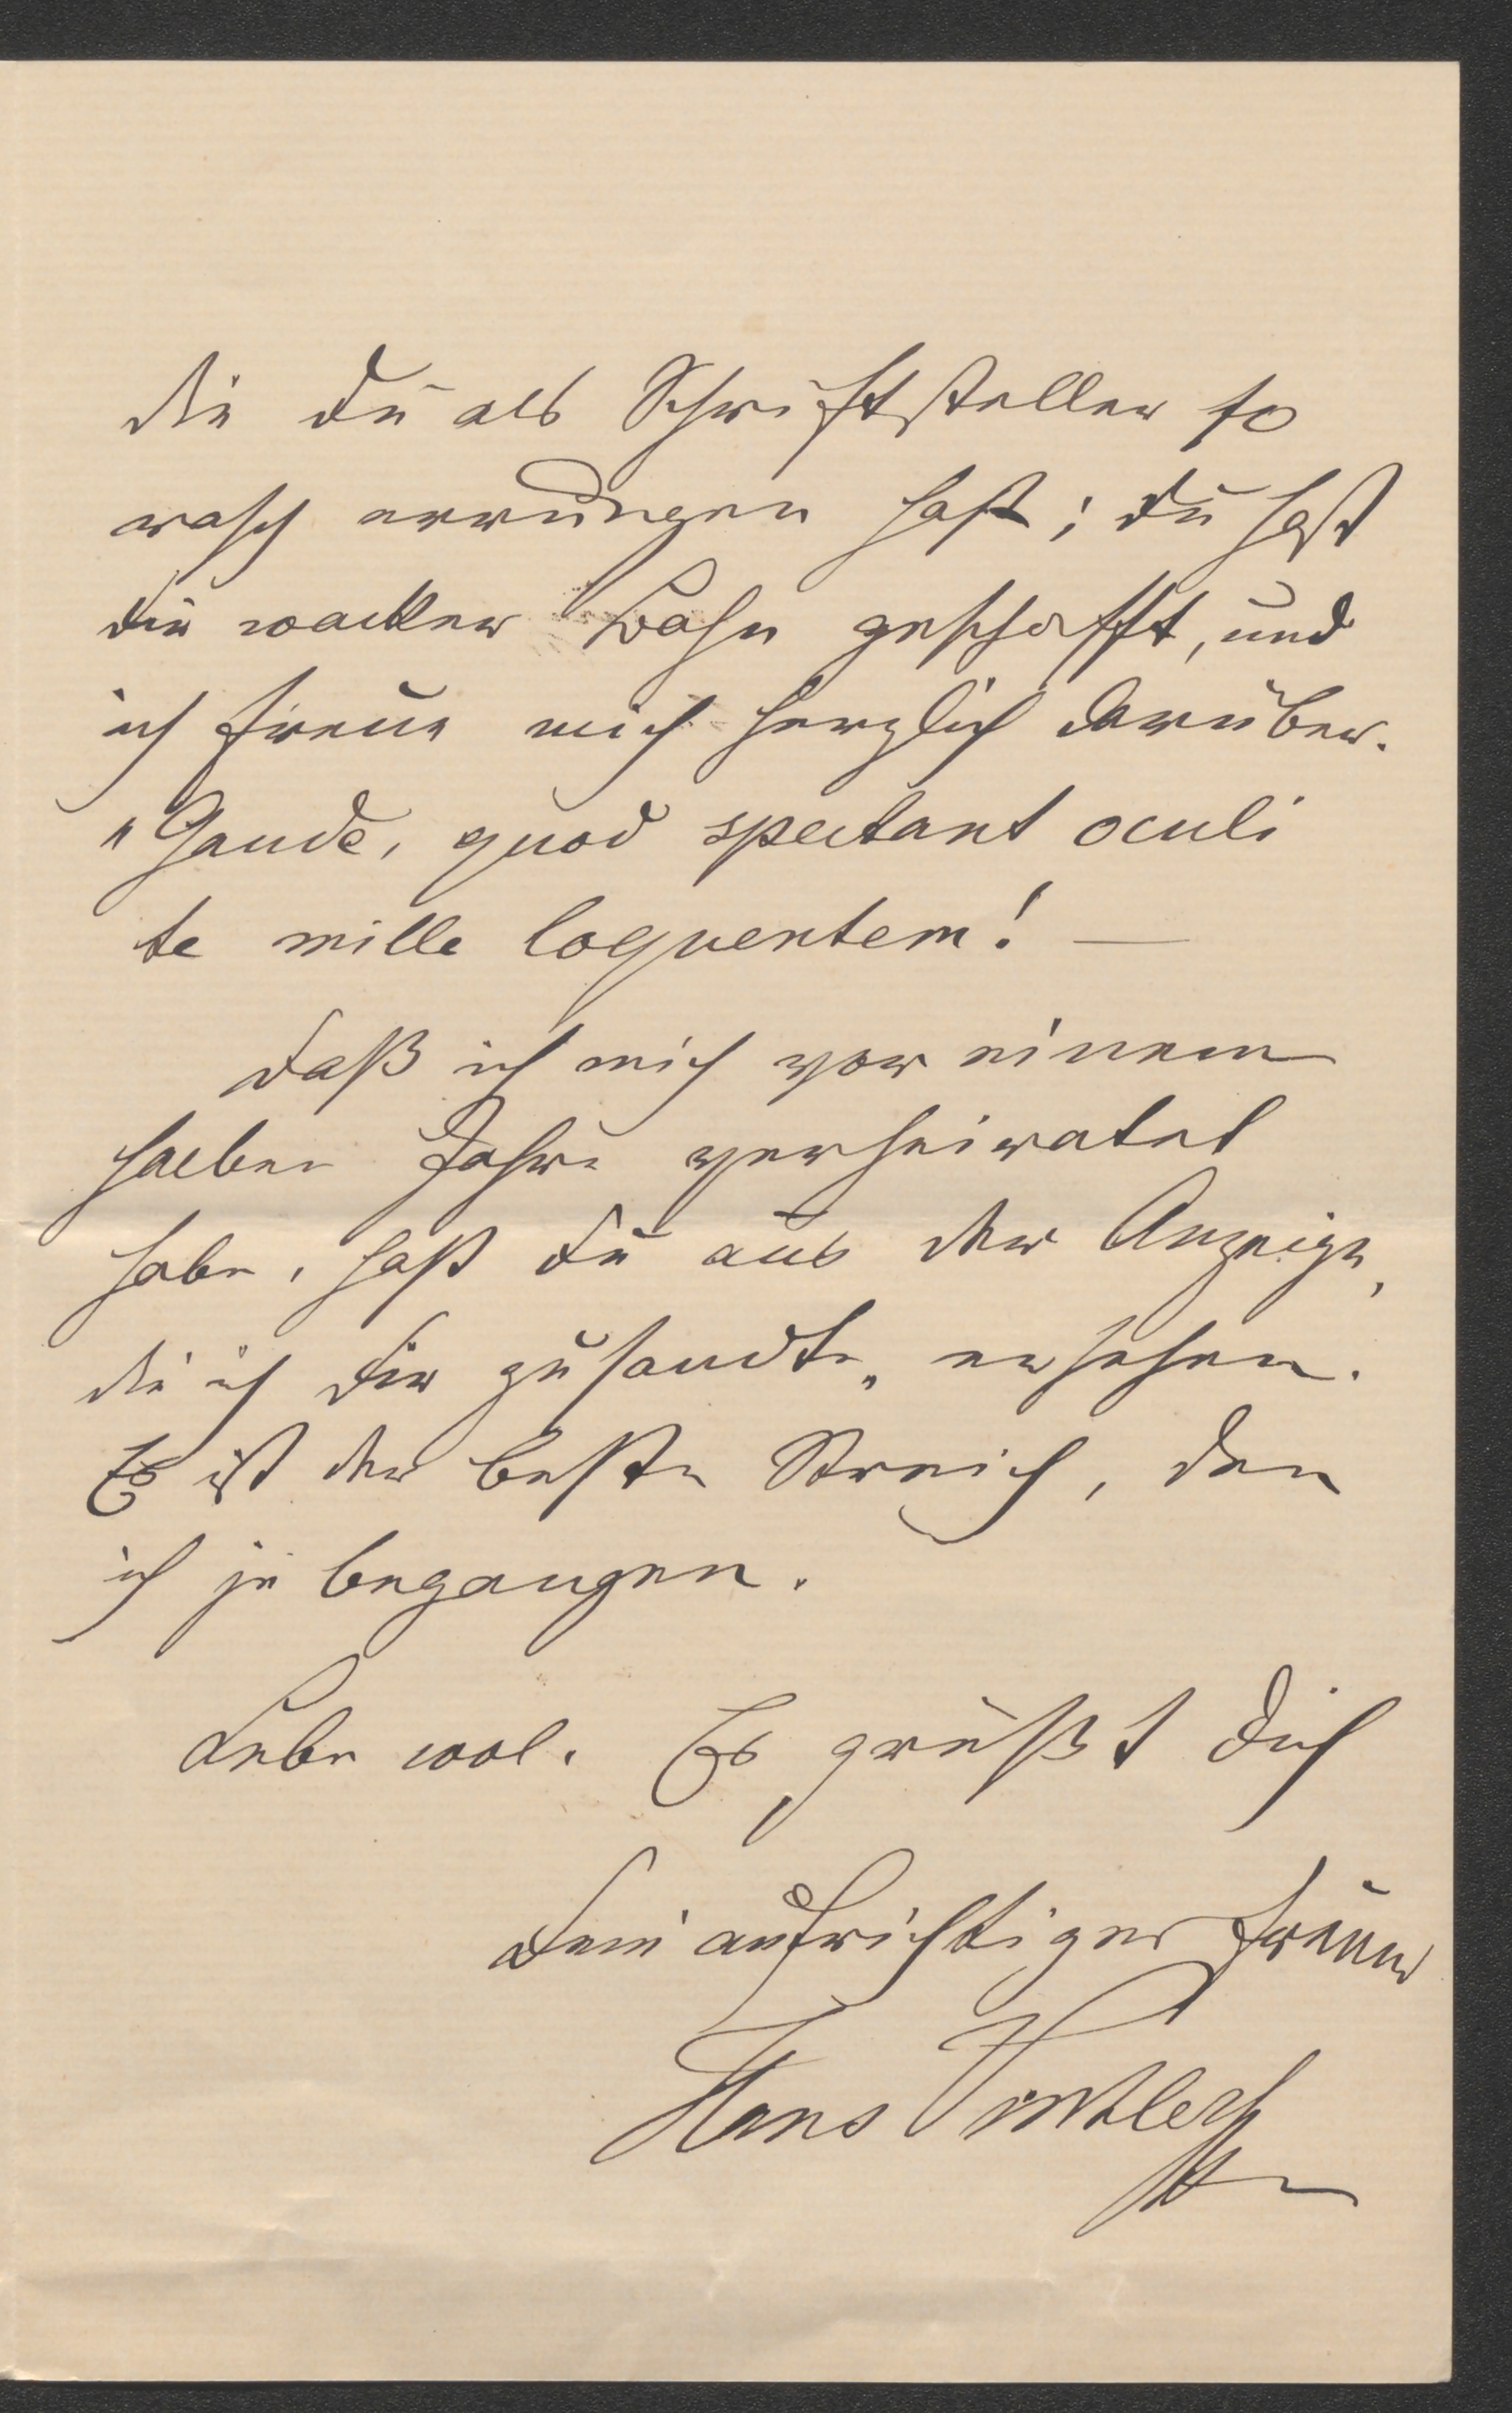 die du als Schriftsteller so
rasch errungen hast; du hast
dir wacker Bahn geschafft, und
ich freue mich herzlich darüber.
"Gaude, quod spectant oculi
te mille loquentem! —
Daß ich mich vor einem
halben Jahre verheiratet
habe, hast du aus der Anzeige,
die ich dir zusandte, ersehen.
Es ist der beste Streich, den
ich je begangen.
Lebe wol. Es grüßt dich
dein aufrichtiger Freund
Hans Vintler